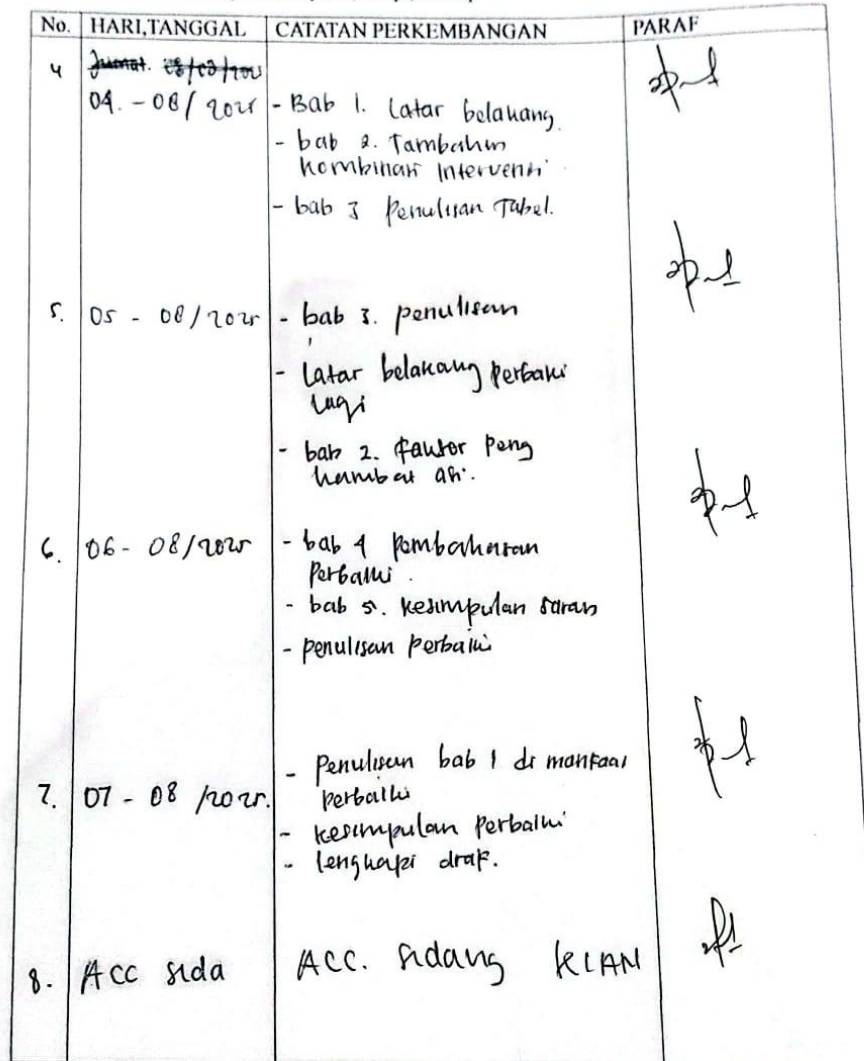 No. HARI,TANGGAL CATATAN PERKEMBANGAN PARAF
4 Jumat.
04. - 08/2025 - Bab 1. Latar belakang.
- bab 2. Tambahan
kombinasi Intervensi
- bab 3 Penulisan Tabel.
5. 05 - 08/2025 - bab 3. penulisan
- Latar belakang Perbaiki
lagi
- bab 2. faktor Peng
hambat asi.
6. 06 - 08/2025 - bab 4 Pembahasan
Perbaiki.
- bab 5. kesimpulan saran
- penulisan Perbaiki
7. 07 - 08 /2025. - Penulisan bab 1 di manfaat
perbaiki
- kesimpulan Perbaiki
- lengkapi draf.
8. ACC sida ACC. sidang KIAN